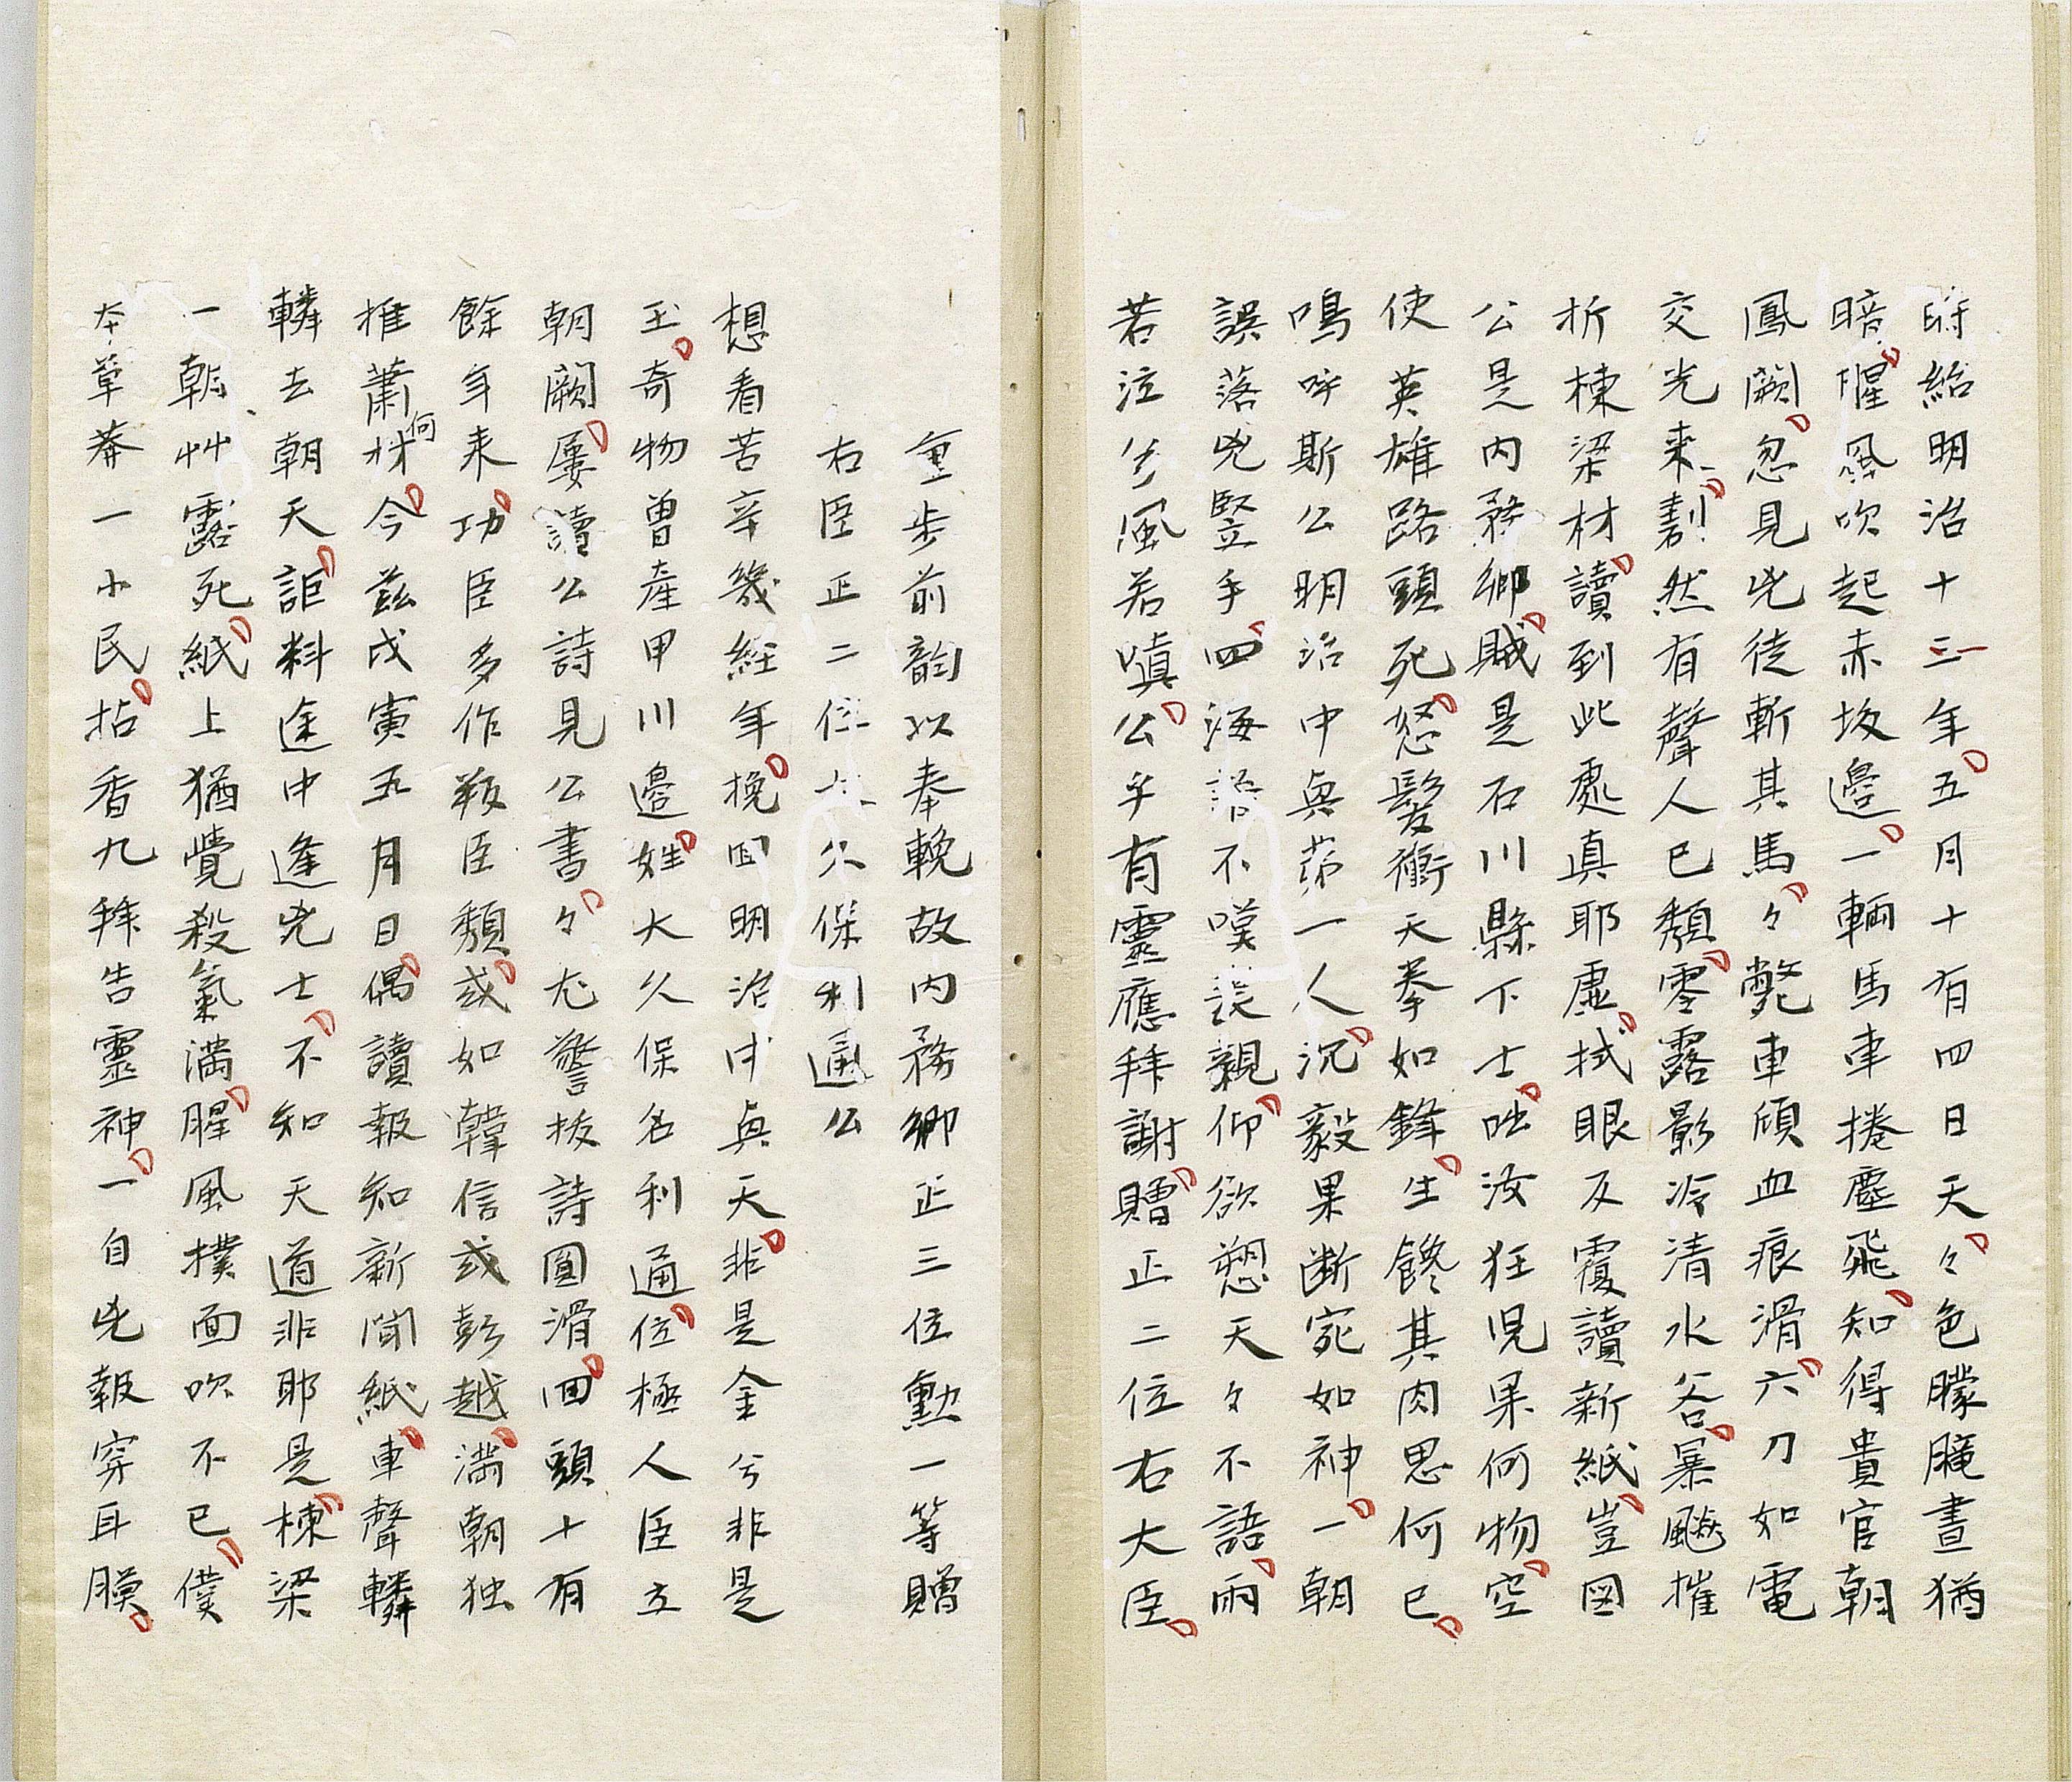 時給明治十三年五月十有四日天々色朦朧晝猶
暗腥風吹起赤坂邊一輛馬車捲塵飛知得貴官朝
鳳闕忽見兇徒斬其馬々斃車傾血痕滑六刀如電
交光来劃然有聲人已頽零露影冷清水谷暴颷摧
折棟梁材讀到此處真耶虚拭眼反覆讀新紙豈図
公是内務卿賊是石川縣下士咄汝狂児果何物空
使英雄路頭死怒髮衝天拳如鋒生饞其肉思何已
鳴呼斯公明治中興第一人沉毅果断宛如神一朝
誤落兇竪手四海誰不嘆喪親仰欲愬天々不語雨
若泣兮風若嗔公乎有靈應拜謝贈正二位右大臣
重步前韵以奉輓故内務卿正三位勲一等贈
右臣正二位大久保利通公
想看苦辛幾經年挽回明治中興天非是金兮非是
玉奇物曽産甲川邉姓大久保名利通位極人臣立
朝闕屢讀公詩見公書々尤警拔詩圓滑回頭十有
餘年来功臣多作叛臣頽或如韓信或彭越満朝独
推蕭何材今茲戊寅五月日偶讀報知新聞紙車聲轔
轔去朝天詎料途中逢兇士不知天道非耶是棟梁
一朝艸露死紙上猶覺殺氣満腥風撲面吹不已僕
本草莽一小民拈香九拜告靈神一自兇報穿耳膜